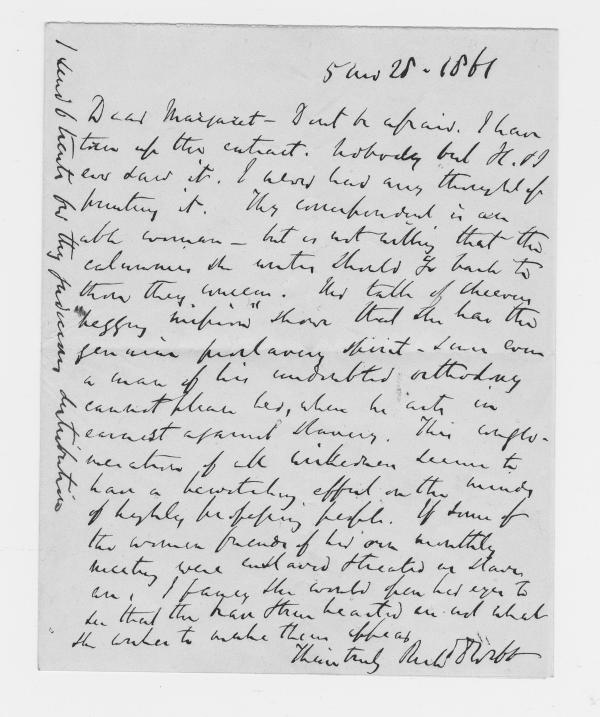 28 - 1861
Dear Margaret - Dont be afraid. I have
torn up the extract. Nobody but H. & I
ever saw it. I never had any thought of
printing it. Thy correspondent is an
able woman - but is not willing that the
calumnies she writes should go back to
those they concern. Her talk of Cheevers
begging "mission" shows that she has the
genuine proslavery spirit - since even
a man of his undoubted orthodoxy
cannot please her, when he acts in
earnest against slavery. This conglo-
meration of all wickedness seems to
have a bewitching effect on the minds
of highly professing people. If some of
the women friends of her own monthly
meeting were enslaved & treated as slaves
are, I fancy she would open her eyes to
see that the true hearted are not what
she wishes to make them appear
Thine truly Richd D Webb
I send 6 tracts for thy judicious distribution